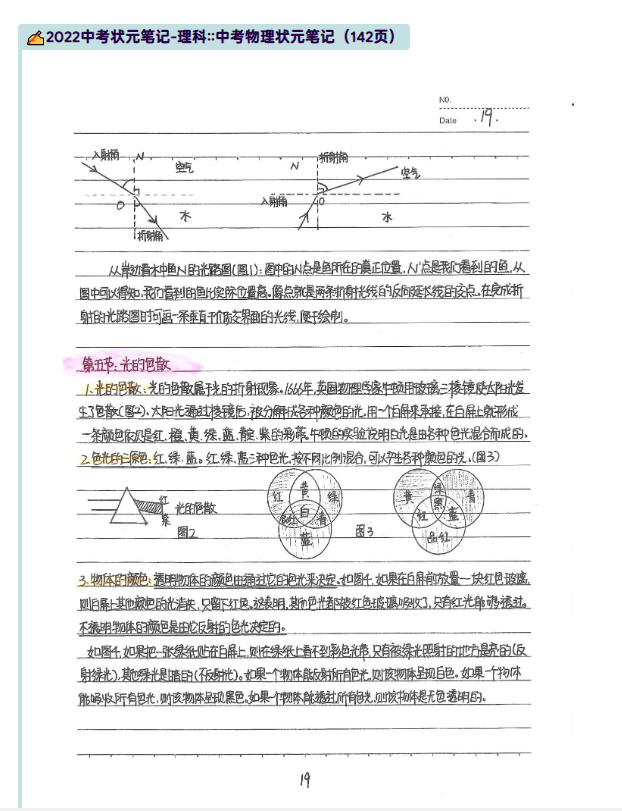 2022中考状元笔记-理科::中考物理状元笔记（142页）
NO.
Date .19.
入射角 N 空气
N 折射角 空气
O 水
入射角 O 水
折射角
从岸边看水中鱼N的光路图(图1):图中的N点是鱼所在的真正位置,N'点是我们看到的鱼,从
图中可以得知,我们看到的鱼比实际位置高。像点就是两条折射光线的反向延长线的交点。在完成折
射的光路图时可画一条垂直于介质交界面的光线,便于绘制。
第五节:光的色散
1.光的色散:光的色散属于光的折射现象。1666年,英国物理学家牛顿用玻璃三棱镜使太阳光发
生了色散(图2)。太阳光通过棱镜后,被分解成各种颜色的光,用一个白屏来承接,在白屏上就形成
一条颜色依次是红、橙、黄、绿、蓝、靛、紫的彩带。牛顿的实验说明白光是由各种色光混合而成的。
2.色光的三原色:红、绿、蓝。红、绿、蓝三种色光,按不同比例混合,可以产生各种颜色的光。(图3)
红
紫
光的色散
图2
红 黄 绿
白
品红 青
蓝
图3
黄 绿 青
黑
红 蓝
品红
3.物体的颜色:透明物体的颜色由通过它的色光来决定。如图4,如果在白屏前放置一块红色玻璃,
则白屏上其他颜色的光消失,只留下红色。这表明,其他色光都被红色玻璃吸收了,只有红光能够透过。
不透明物体的颜色是由它反射的色光决定的。
如图4,如果把一张绿纸贴在白屏上,则在绿纸上看不到彩色光带,只有被绿光照射的地方是亮的(反
射绿光),其他绿光是暗的(不反射光)。如果一个物体能反射所有色光,则该物体呈现白色。如果一个物体
能吸收所有色光,则该物体呈现黑色。如果一个物体能透过所有色光,则该物体是无色透明的。
19